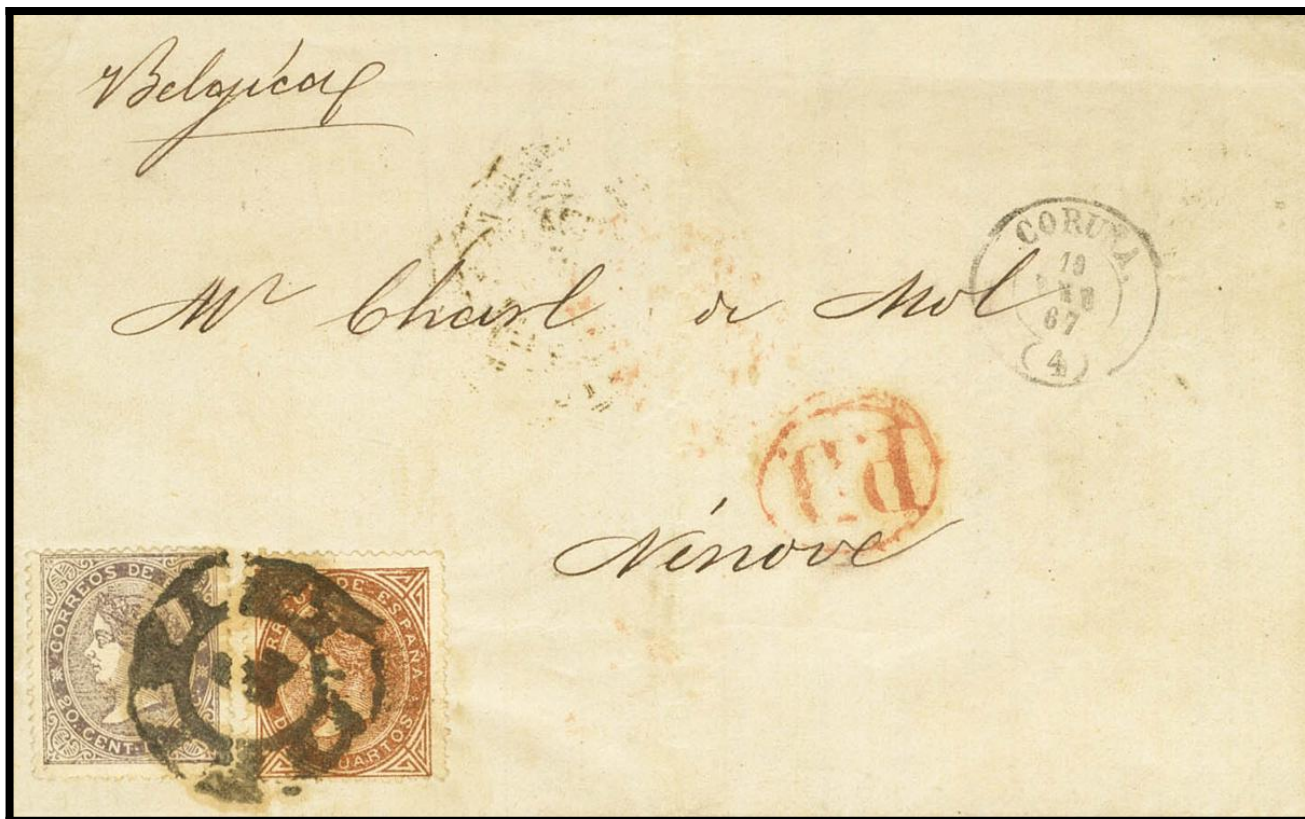 Belgica
CORUÑA
19
67
(4)
Mr Charl de Mol
P.D.
Ninove
CORREOS DE
20. CENT. DE
CORREOS DE ESPAÑA
CUARTOS